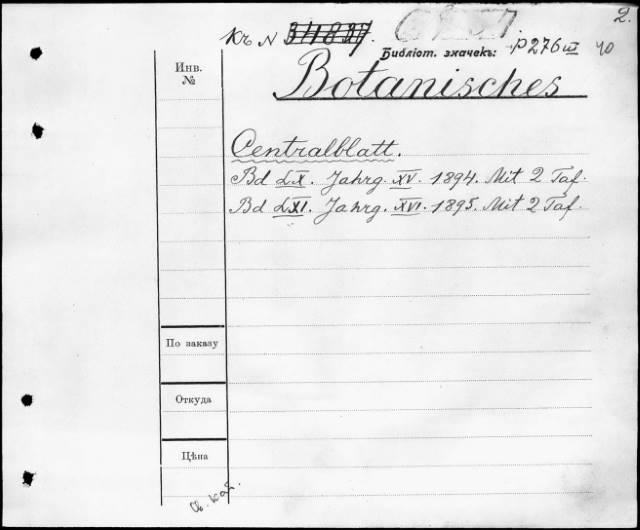 2.
Къ N
Библіот. значек: P 276 III 40
Инв. №
Botanisches
Centralblatt.
Bd LX. Jahrg. XV. 1894. Mit 2 Taf.
Bd LXI. Jahrg. XVI. 1895. Mit 2 Taf.
По заказу
Откуда
Цѣна
Св. кат.